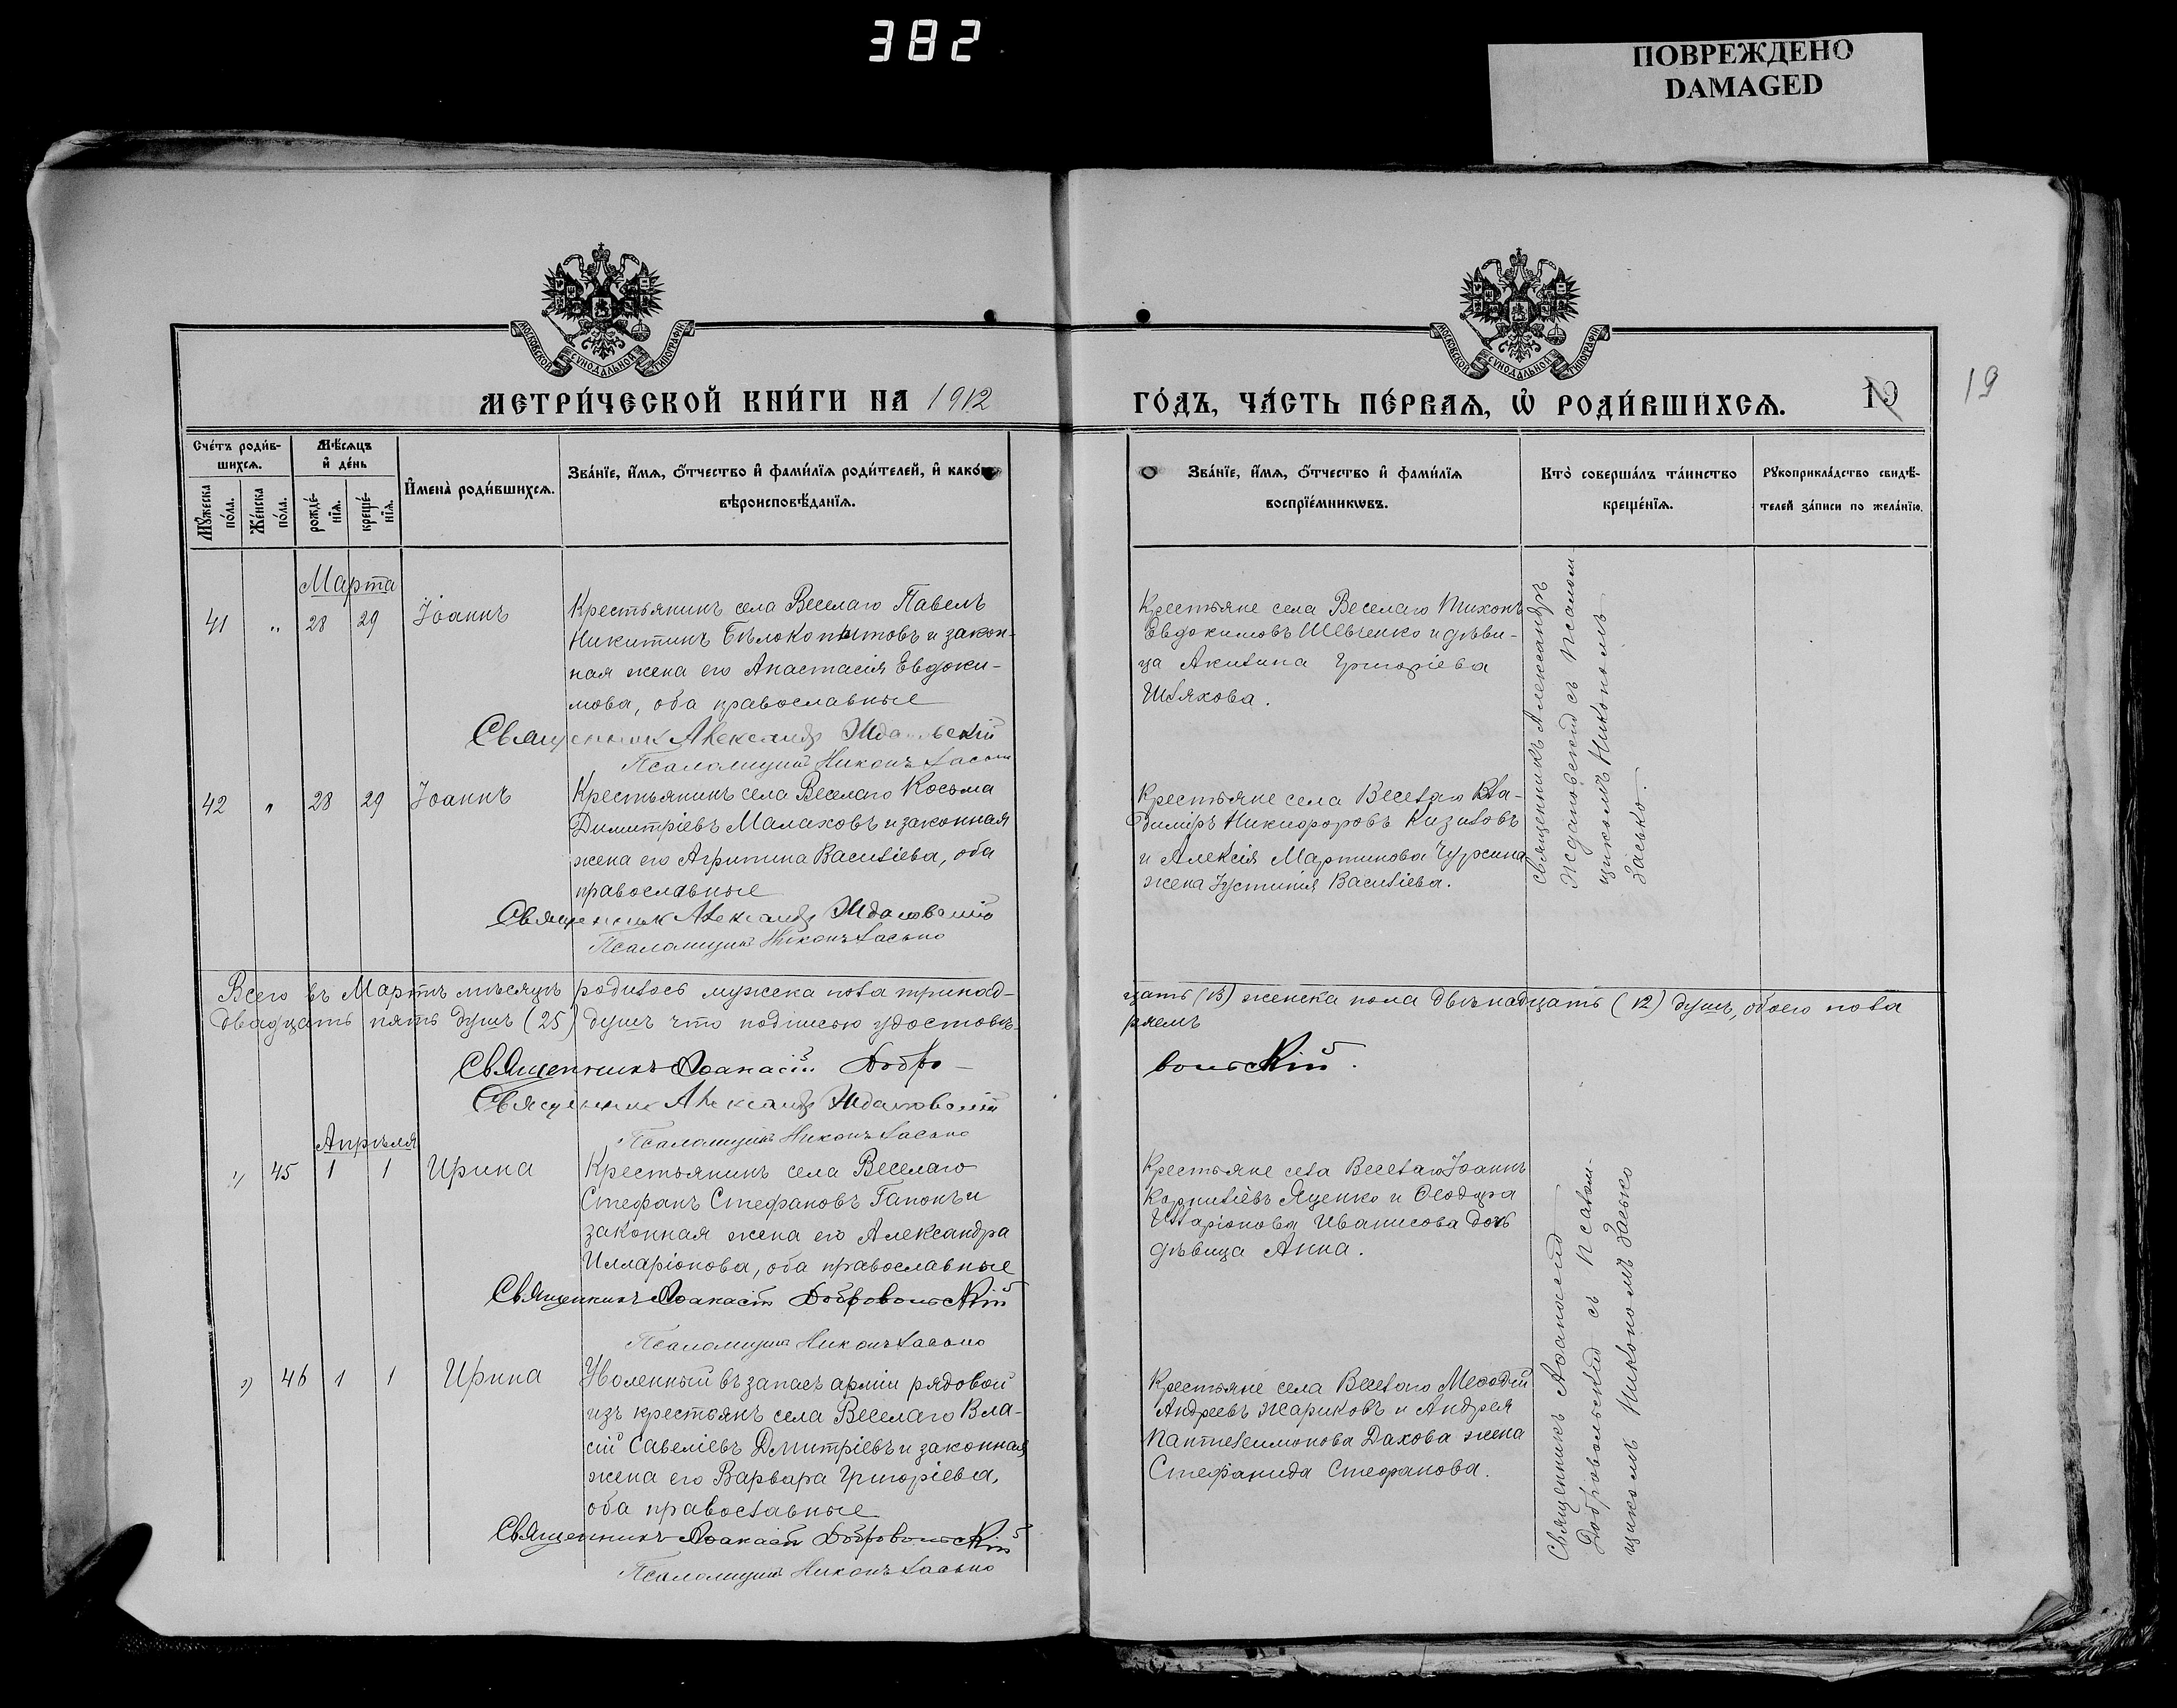 382
ПОВРЕЖДЕНО
DAMAGED
МОСКОВСКОЙ СУНОДАЛЬНОЙ ТИПОГРАФІИ
МОСКОВСКОЙ СУНОДАЛЬНОЙ ТИПОГРАФІИ
МЕТРИ́ЧЕСКОЙ КНИ́ГИ НА 1912
ГО́ДЪ, ЧА́СТЬ ПЕ́РВАѦ, Ѡ҆ РОДИ́ВШИХСѦ.
19
19
Сче́тъ роди́в-
шихсѧ.
Мѣ́сѧцъ
и҆ де́нь
И҆мена̀ роди́вшихсѧ.
Зва́нїе, и҆́мѧ, ѻ҆́тчество и҆ фами́лїѧ роди́телей, и҆ како́гѡ
вѣроисповѣ́данїѧ.
Мꙋ́жеска
по́ла.
Же́нска
по́ла.
рожде́-
нїѧ.
креще́-
нїѧ.
Зва́нїе, и҆́мѧ, ѻ҆́тчество и҆ фами́лїѧ
воспрїе́мникѡвъ.
Кто̀ соверша́лъ та́инство
креще́нїѧ.
Рꙋкоприкла́дство свидѣ́-
телей за́писи по жела́нїю.
Марта
41 " 28 29 Іоаннъ
Крестьянинъ села Веселаго Павелъ
Никитинъ Бѣлокопытовъ и закон-
ная жена его Анастасія Евдоки-
мова, оба православные
Священник Александр Ждановскій
Псаломщикъ Никонъ Засько
Крестьяне села Веселаго Тихонъ
Евдокимовъ Шевченко и дѣви-
ца Акилина Григоріева
Шляхова.
священникъ Александръ
Ждановскій съ псалом
щикомъ Никономъ
Засько.
42 " 28 29 Іоаннъ
Крестьянинъ села Веселаго Косьма
Димитріевъ Малаховъ и законная
жена его Агрипина Василіева, оба
православные
Священник Александр Ждановскій
Псаломщикъ Никонъ Засько
Крестьяне села Веселаго Вла-
диміръ Никифоровъ Кизиловъ
и Алексія Мартинова
жена Іустинія Василіева.
Всего въ Мартѣ мѣсяцѣ родилось мужеска пола тринад-
цать (13) женска пола двѣнадцать (12) душъ, обоего пола
двадцать пять душъ (25) душъ что подписью удостовѣ-
ряемъ
Священникъ Аѳанасій Добро-
вольскій.
Священник Александр Ждановскій
Псаломщикъ Никонъ Засько
Апрѣля
" 45 1 1 Ирина
Крестьянинъ села Веселаго
Стефанъ Стефановъ Гапонъ и
законная жена его Александра
Илларіонова, оба православные
Священникъ Аѳанасій Добровольскій
Псаломщикъ Никонъ Засько
Крестьяне села Веселаго Іоаннъ
Корнилiевъ Яценко и Ѳеодора
Илларіонова Иванисова дочь
дѣвица Анна.
Священникъ Аѳанасій
Добровольскій съ псалом-
щикомъ Никономъ Засько
46 1 1 Ирина
Уволенный въ запасъ арміи рядовой
изъ крестьянъ села Веселаго Вла-
сій Савеліевъ Дмитріевъ и законная
жена его Варвара Григоріева,
оба православные
Священникъ Аѳанасій Добровольскій
Псаломщикъ Никонъ Засько
Крестьяне села Веселаго Меѳодій
Андреевъ Жариковъ и Андрея
Пантелеимонова Дахова жена
Стефанида Стефанова.